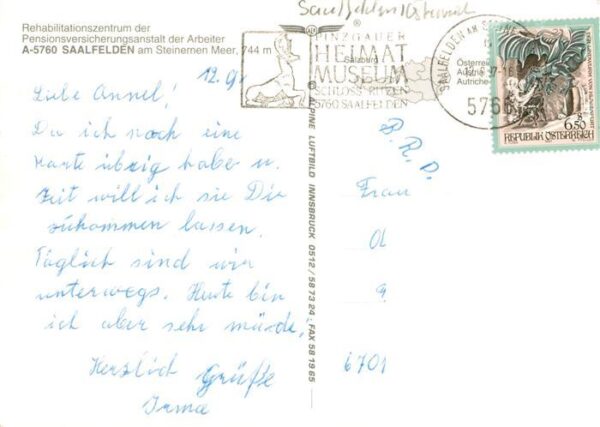 Rehabilitationszentrum der
Pensionsversicherungsanstalt der Arbeiter
A-5760 SAALFELDEN am Steinernen Meer, 744 m
12.
Liebe Annel!
Da ich noch eine
Karte übrig habe u.
Zeit will ich sie Dir
zukommen lassen.
Täglich sind wir
unterwegs. Heute bin
ich aber sehr müde,
Herzlich Grüße
Irma
ALPINE LUFTBILD INNSBRUCK 0512/587324 FAX 581965
Saalfelden/Österreich
PINZGAUER
HEIMAT
MUSEUM
SCHLOSS RITZEN
5760 SAALFELDEN
Salzburg
Österreich
Austria
Autriche
SAALFELDEN AM STEINE
5760
REPUBLIK ÖSTERREICH
S 6,50
B.R.D.
Frau
Ol
a
6701